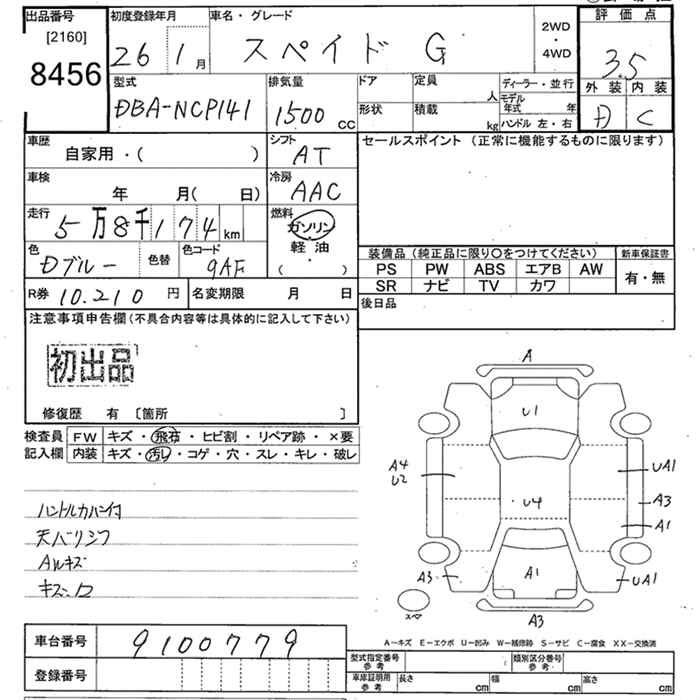 出品番号
[2160]
8456
初度登録年月
26 1月
車名・グレード
スペイド G
2WD
・
4WD
評価点
3.5
外装 内装
D C
型式
DBA-NCP141
排気量
1500 cc
ドア
形状
定員 人
積載 kg
ディーラー・並行
モデル年式 年
ハンドル 左・右
車歴
自家用・( )
シフト
AT
セールスポイント (正常に機能するものに限ります)
車検
年 月( 日)
冷房
AAC
走行
5万8千174km
燃料
ガソリン
軽油
・
( )
色
Dブルー
色替
色コード
9AF
装備品(純正品に限り〇をつけてください)
新車保証書
PS PW ABS エアB AW
SR ナビ TV カワ
有・無
R券 10.210 円
名変期限 月 日
後日品
注意事項申告欄(不具合内容等は具体的に記入して下さい)
初出品
修復歴 有 〔箇所 〕
検査員
記入欄
FW キズ・飛石・ヒビ割・リペア跡・×要
内装 キズ・汚し・コゲ・穴・スレ・キレ・破レ
ハンドルカバー付
天バリシワ
AWキズ
A
U1
A4
U2
UA1
A3
A1
U4
A3
A1
UA1
スペア
A3
A-キズ E-エクボ U-凹み W-補修跡 S-サビ C-腐食 XX-交換済
車台番号
9100779
登録番号
型式指定番号
参考
類別区分番号
参考
車庫証明用
参考
長さ cm
幅 cm
高さ cm